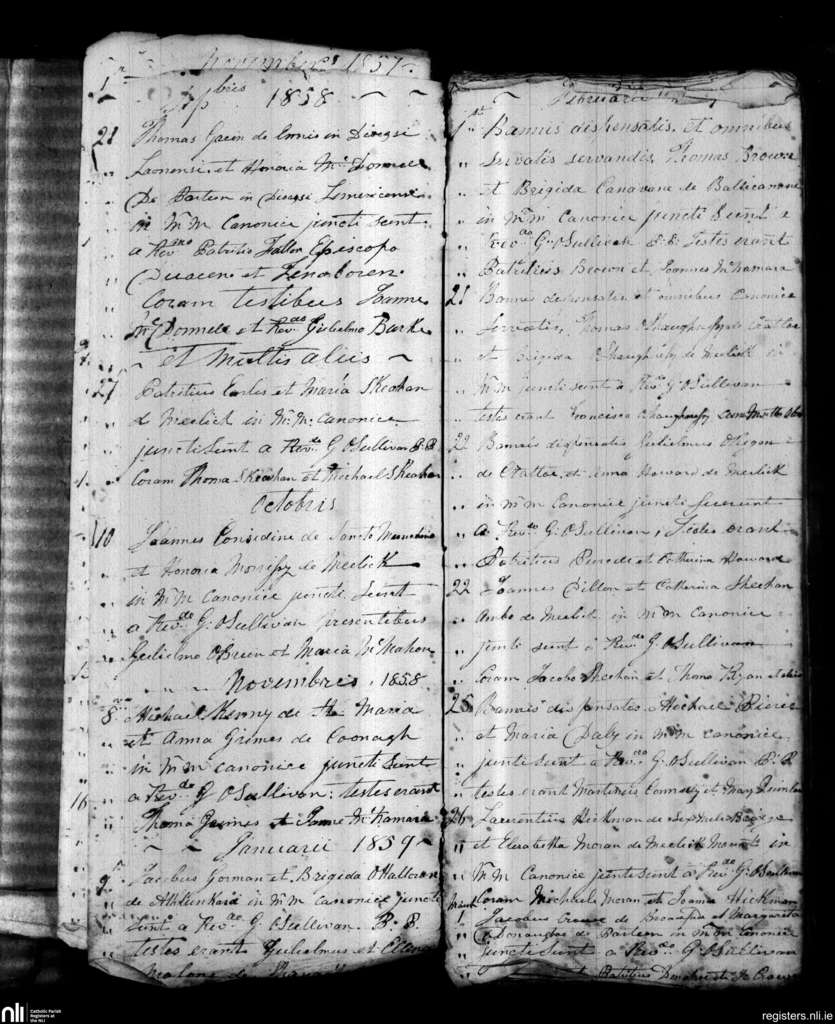 Novembris 1857
7bris 1858
21 Thomas Green de Ennis in Diocesi
Laonensi et Honoria McDonnell
De Parteen in Diocesi Limericensi
in Mm Canonice juncti sunt
a Revmo Patritio Fallon Episcopo
Duacen et Fenaboren
Coram testibus Joanne
McDonnell et Revdo Gulielmo Burke
et multis aliis
27 Patritius Earles et Maria Skeahan
de Meelick in Mm Canonice
juncti sunt a Revdo G OSullivan P.P.
Coram Thoma Skeahan et Michael Skeahan
Octobris
10 Joannes Considine de Sancto Munchino
et Honoria Morrissy de Meelick
in Mm Canonice juncti sunt
a Revdo G. OSullivan presentibus
Gulielmo OBrien et Maria McMahon
Novembris, 1858
8 Michael Kenny de Sta Maria
et Anna Grimes de Coonagh
in Mm canonice juncti sunt
a Revdo G OSullivan: testes erant
Thoma Grimes et Joanne McNamara
Januarii 1859
9 Jacobus Gorman et Brigida OHalloran
de Athlunkard in Mm canonice juncti
sunt a Revdo G. OSullivan. P.P.
testes erant Gulielmus et Ellen
Malone de
Februarii
1st Bannis dispensatis, et omnibus
servatis servandis, Thomas Browne
et Brigida Canavane de Ballicanane
in Mm canonice juncti sunt a
Revdo G. OSullivan P.P. Testes erant
Patritius Brown et Joannes McNamara
21 Bannis dispensatis et omnibus Canonice
servatis, Thomas OShaughnessy de Crattloe
et Brigida OShaughnessy de Meelick in
Mm juncti sunt a Revdo G. OSullivan
testes erant Francisco Shaughnessy
22 Bannis dispensatis Gulielmus
de Crattloe, et Anna Howard de Meelick
in Mm Canonice juncti fuerunt
a Revdo G. OSullivan, Testes erant
Patritius et Catherina Howard
22 Joannes Dillon et Catherina Sheehan
Ambo de Meelick in Mm canonice
juncti sunt a Revdo G. OSullivan
Coram Jacobo Sheehan et Thoma Ryan et aliis
25 Bannis dispensatis Michael
et Maria Daly in Mm canonice
juncti sunt a Revdo G. OSullivan P.P.
testes erant Martinus Connelly et Mary Quinlan
26 Laurentius Hickman de
et Elizabetha Moran de Meelick in
Mm Canonice juncti sunt a Revdo G. OSullivan
Coram Michaele Moran et Joanna Hickman
1 Jacobus et Margarita
Donoughoe de Parteen in Mm Canonice
juncti sunt a Revdo G. OSullivan
Patritius
nli
Catholic Parish
Registers at
the NLI
registers.nli.ie